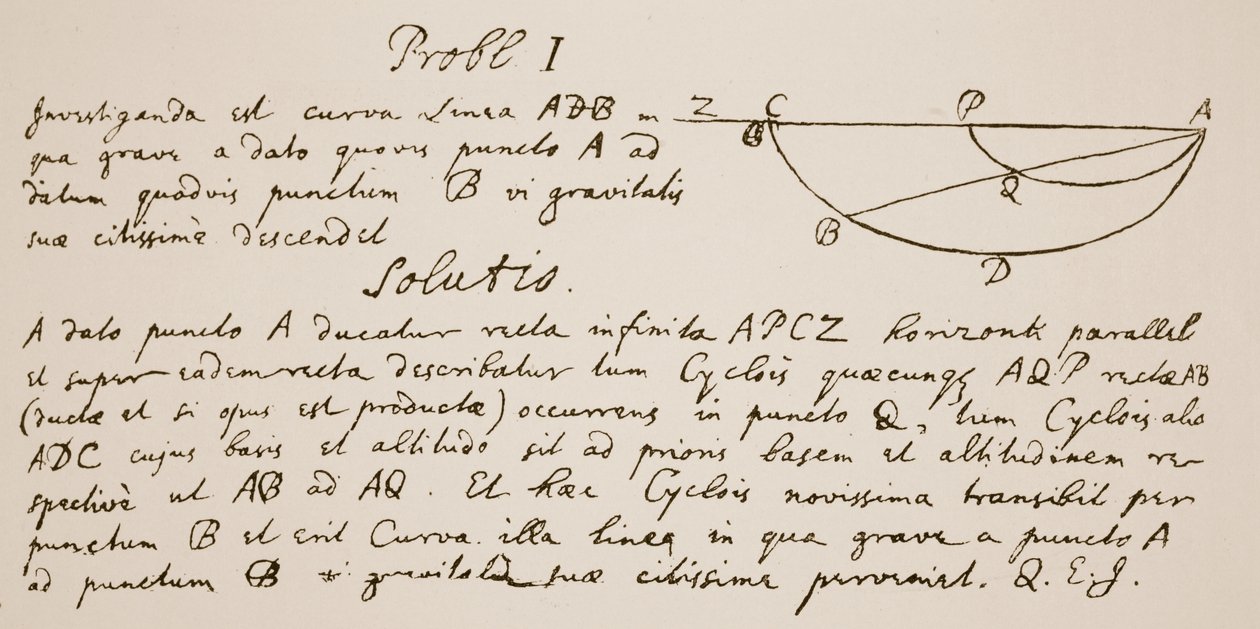 Probl I
Investiganda est curva Linea ADB in
qua grave a dato quovis puncto A ad
datum quodvis punctum B vi gravitatis
suæ citissimè descendet
Z C P A
B Q D
Solutio.
A dato puncto A ducatur recta infinita APCZ horizonti parallel
et super eadem recta describatur tum Cyclois quæcunqꝫ AQP rectæ AB
(ductæ et si opus est productæ) occurrens in puncto Q, tum Cyclois alia
ADC cujus basis et altitudo sit ad prioris basem et altitudinem re-
spectivè ut AB ad AQ. Et hæc Cyclois novissima transibit per
punctum B et erit Curva illa linea in qua grave a puncto A
ad punctum B vi gravitatis suæ citissime perveniet. Q.E.J.